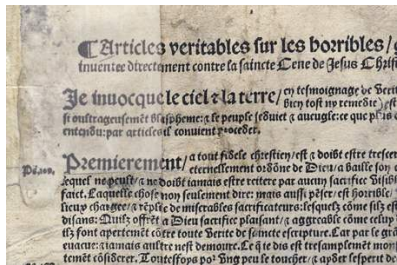 ¶ Articles veritables sur les horribles / g
inuentee directement contre la saincte Cene de Jesus Chris
Je inuocque le ciel ⁊ la terre / en tesmoignage de Verit
bien tost ny remedie) est
si oultrageusemēt blaspheme: ⁊ le peuple seduict ⁊ aueugle: ce que plus
entendu: par articles il conuient proceder.
Premierement / a tout fidele chrestien / est ⁊ doibt estre trescer
eternellement ordōne de Dieu) a baille son
lequel ne peult / ⁊ ne doibt iamais estre reitere par aucun sacrifice visibl
faict. Laquelle chose non seulement dire: mais aussi pēser / est horrible
lieux chargee / ⁊ rēplie de miserables sacrificateurs: lesquelz cōme silz est
disans: Quilz offrēt a Dieu sacrifice plaisant / ⁊ aggreable cōme celuy
ilz font apertemēt cōtre toute Verite de saincte escripture. Car par le grā
euacue: ⁊ iamais aultre nest demoure. Ce q̄ ie dis est tresamplemēt mon
temēt cōsiderer. Toutesfoys po